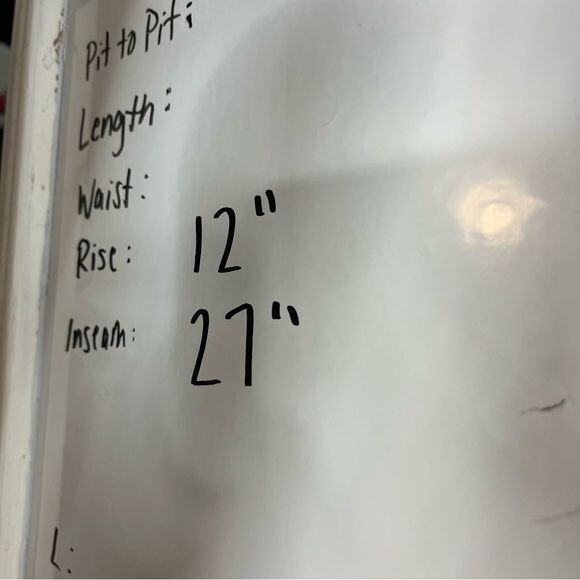 Pit to Pit:
Length:
Waist:
Rise: 12"
Inseam: 27"
L: